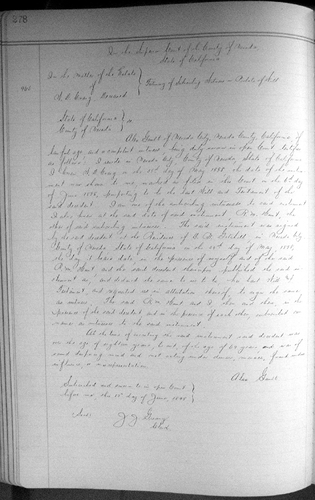 378
In the Superior Court of the County of Nevada
State of California
In the Matter of the Estate
of
Deceased
Testimony of Subscribing Witness - Probate of Will
State of California
County of Nevada
ss
of Nevada City, Nevada County, California, of
lawful age and a competent witness, being duly sworn in open Court, testifies
as follows: I reside in Nevada City, County of Nevada, State of California
I knew on the 15th day of May 1888, the date of the instru-
ment now shown to me, marked as filed in this Court on the
of June 1888, purporting to be the last Will and Testament of the
said decedent. I am one of the subscribing witnesses to said instrument
I also knew at the said date of said instrument, the
other of said subscribing witnesses. The said instrument was signed
by the said decedent at the in Nevada City
County of Nevada State of California on the 15th day of May 1888,
the day it bears date, in the presence of myself and of the said
and the said decedent thereupon published the said in-
strument as, and declared the same to us to be, his last Will and
Testament, and requested us, in attestation thereof, to sign the same
as witnesses. The said and I, then and there, in the
presence of the said decedent and in the presence of each other, subscribed our
names as witnesses to the said instrument.
At the time of executing the said instrument said decedent was
over the age of eighteen years, to wit, of the age of years, and was of
sound disposing mind and not acting under duress, menace, fraud, undue
influence, or misrepresentation
Subscribed and sworn to in open Court
before me, this day of June, 1888
Clerk